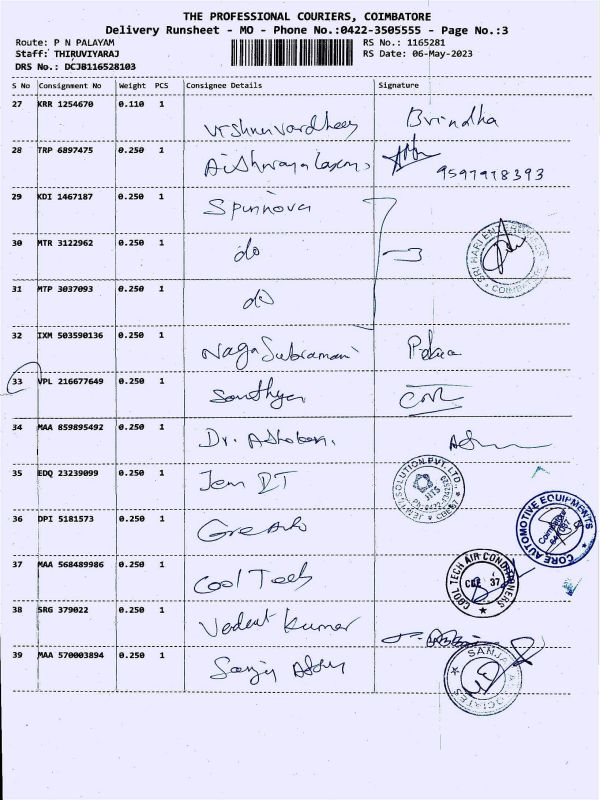 THE PROFESSIONAL COURIERS, COIMBATORE
Delivery Runsheet - MO - Phone No.:0422-3505555 - Page No.:3
Route: P N PALAYAM RS No.: 1165281
Staff: THIRUVIYARAJ RS Date: 06-May-2023
DRS No.: DCJB116528103
S No Consignment No Weight PCS Consignee Details Signature
27 KRR 1254670 0.110 1 Brindha
28 TRP 6897475 0.250 1
9597978393
29 KDI 1467187 0.250 1 Spinnova
30 MTR 3122962 0.250 1 do
SRI HARI ENTERPRISES COIMBATORE
31 MTP 3037093 0.250 1 do
32 IXM 503590136 0.250 1 Naga Subramani
33 VPL 216677649 0.250 1 Sandhya
34 MAA 859895492 0.250 1 Dr.
35 EDQ 23239099 0.250 1 Jem
36 DPI 5181573 0.250 1
CORE AUTOMOTIVE EQUIPMENTS
37 MAA 568489986 0.250 1 Cool Tech
COOL TECH AIR CONDITIONERS
CBE 37
38 SRG 379022 0.250 1 Vedent Kumar
39 MAA 570003894 0.250 1